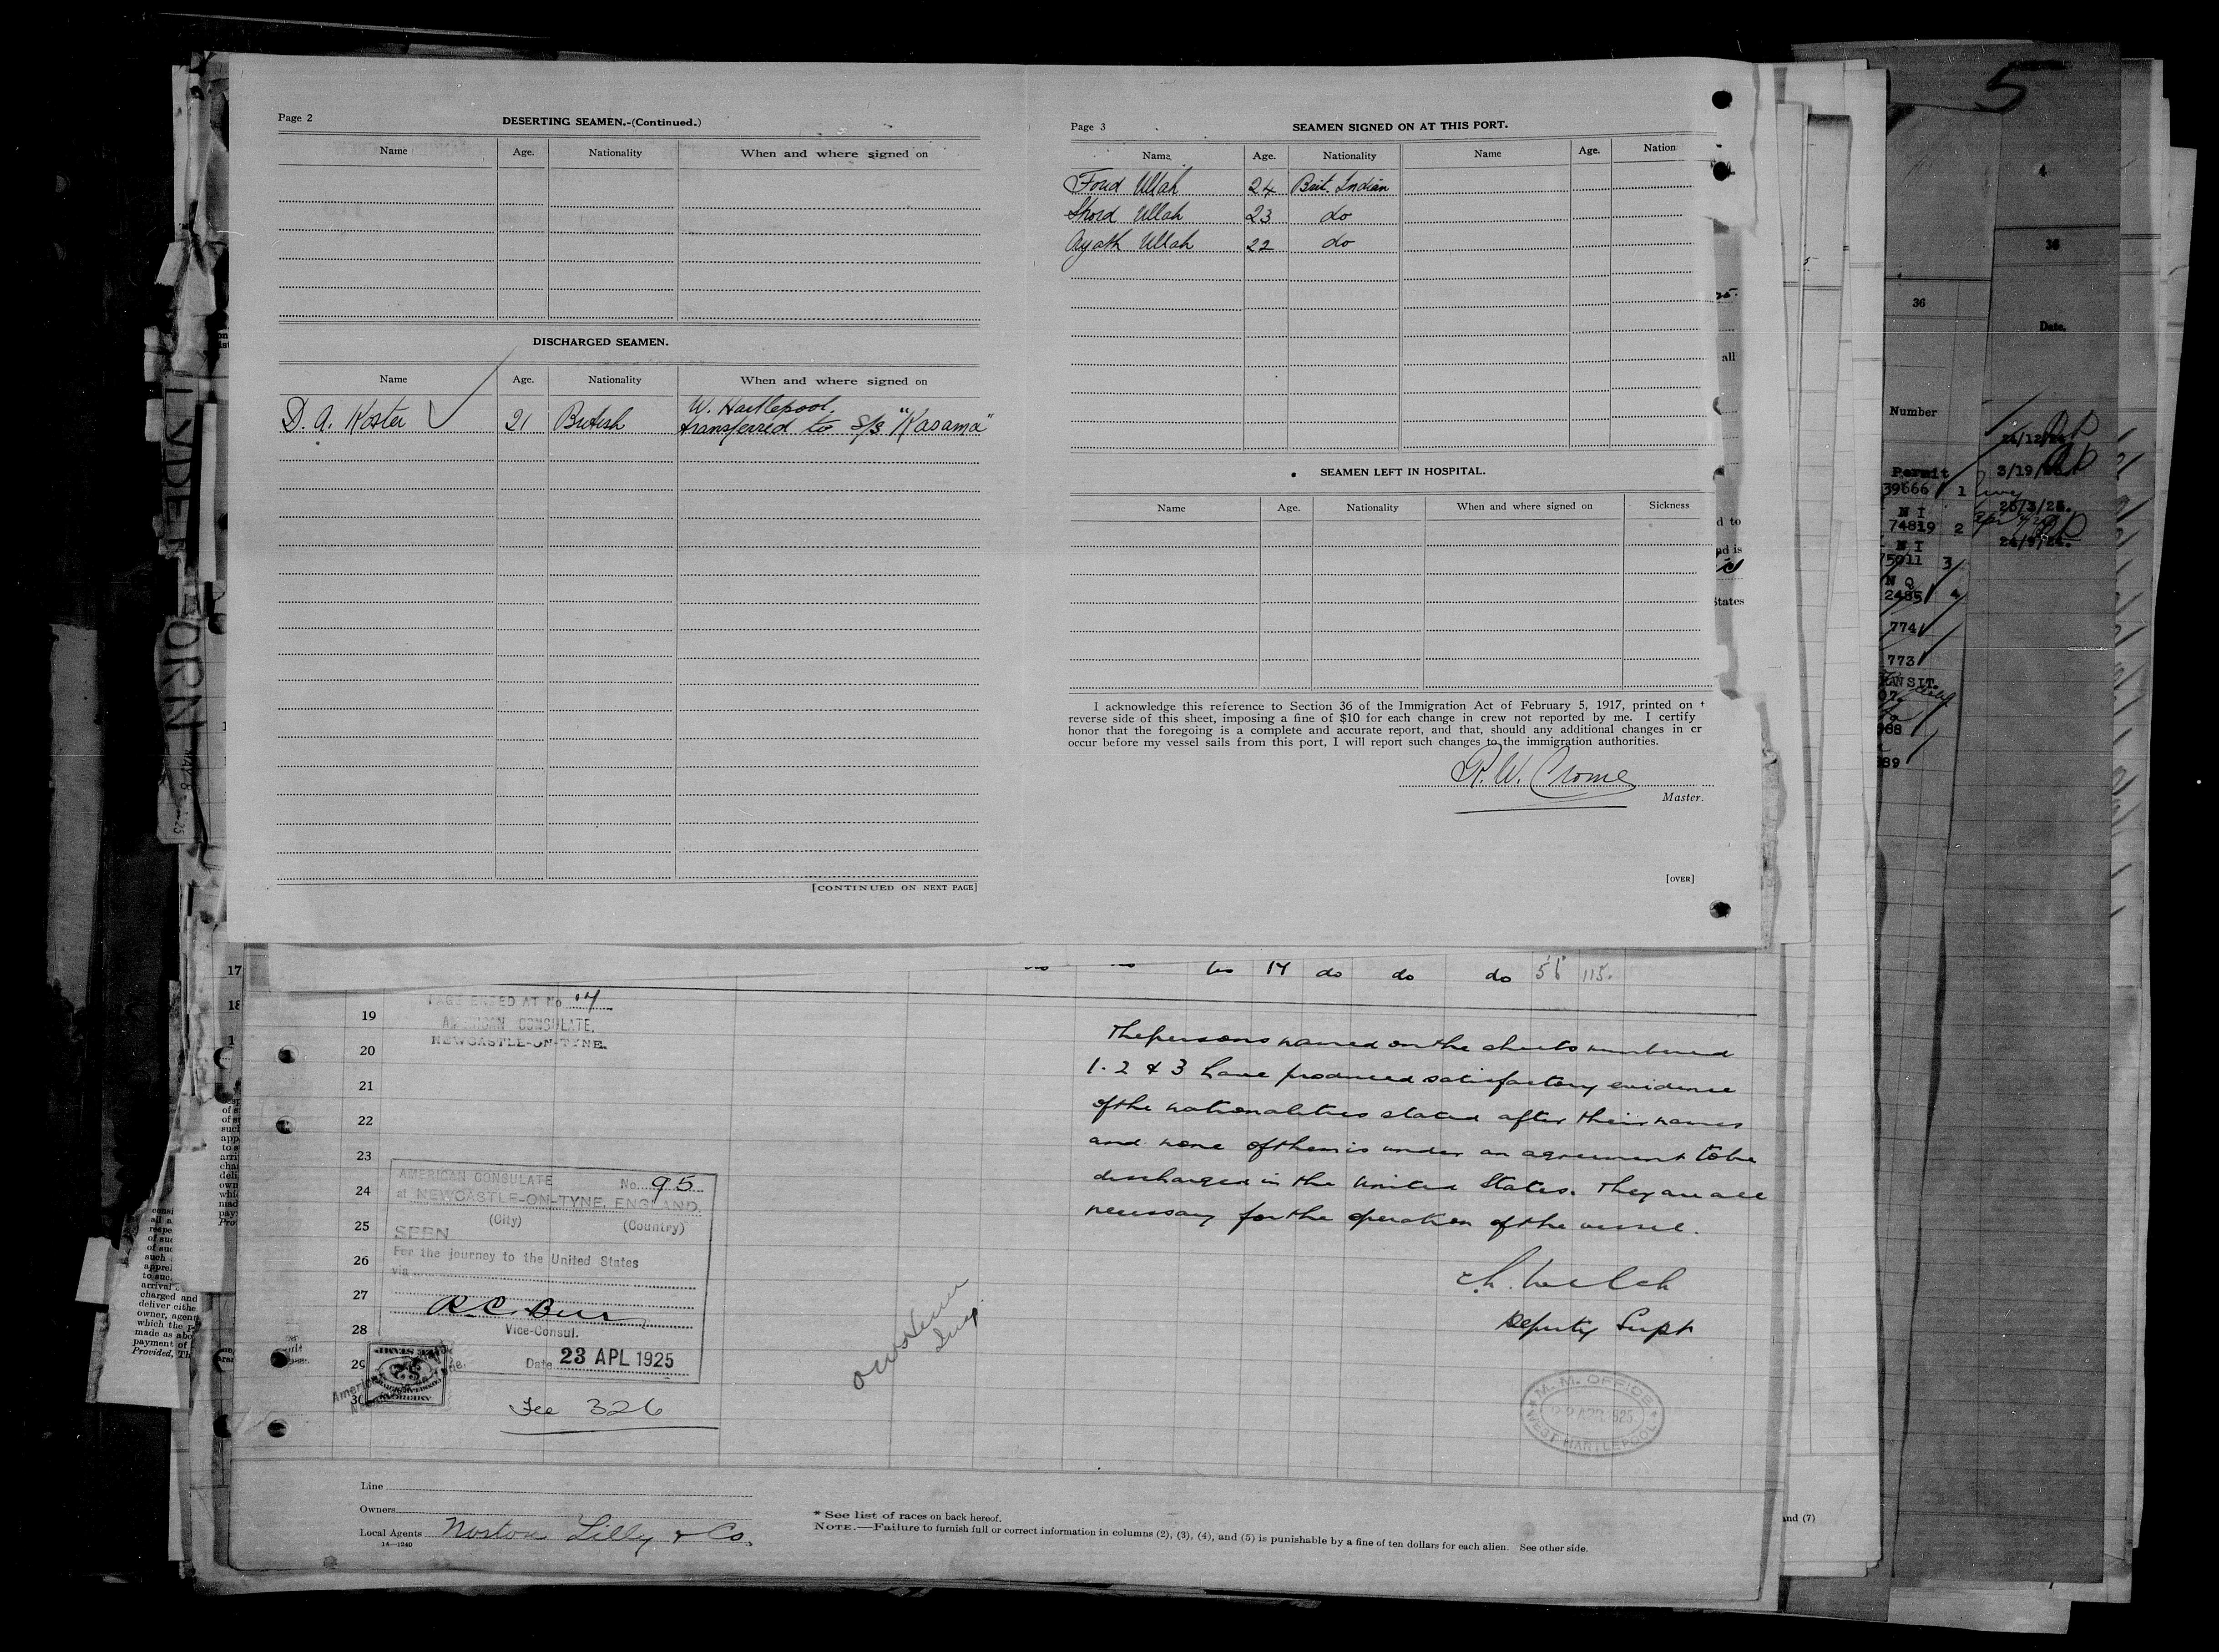 Page 2
DESERTING SEAMEN.-(Continued.)
Name Age. Nationality When and where signed on
DISCHARGED SEAMEN.
Name Age. Nationality When and where signed on
W. Hartlepool.
D. A. Koster 21 British transferred to S/S "Kasama"
[CONTINUED ON NEXT PAGE]
Page 3
SEAMEN SIGNED ON AT THIS PORT.
Name Age. Nationality Name Age. Nation
Foud Ullah 24 Brit. Indian
Ullah 23 do
Ayath Ullah 22 do
SEAMEN LEFT IN HOSPITAL.
Name Age. Nationality When and where signed on Sickness
I acknowledge this reference to Section 36 of the Immigration Act of February 5, 1917, printed on
reverse side of this sheet, imposing a fine of $10 for each change in crew not reported by me. I certify
honor that the foregoing is a complete and accurate report, and that, should any additional changes in cr
occur before my vessel sails from this port, I will report such changes to the immigration authorities.
R. W. Crome
Master.
[OVER]
17
18
14 do do do 56 115.
19
20
21
22
23
24
25
26
27
28
29
30
PAGE ENDED AT No 14
AMERICAN CONSULATE,
NEWCASTLE-ON-TYNE.
The persons named on the sheets numbered
1. 2 & 3 have produced satisfactory evidence
of the nationalities stated after their names
and none of them is under an agreement to be
discharged in the United States. They are all
necessary for the operation of the vessel.
Welch
Deputy Supt
M. M. OFFICE
APR 1925
WEST HARTLEPOOL
AMERICAN CONSULATE No. 95
at NEWCASTLE-ON-TYNE, ENGLAND.
(City) (Country)
SEEN
For the journey to the United States
via
Vice-Consul.
Date 23 APL 1925
Fee 326
Line
Owners
Local Agents Norton Lilly & Co.
14—1240
* See list of races on back hereof.
NOTE.—Failure to furnish full or correct information in columns (2), (3), (4), and (5) is punishable by a fine of ten dollars for each alien. See other side.
and (7)
all
States
5
4
36
36
Date.
Number
Permit
39666 1
N I
74819 2
N I
75911 3
N Q
2485 4
774
773
3/19/
charged and
deliver eithe
owner, agent
which the p
made as abo
payment of
Provided, Th